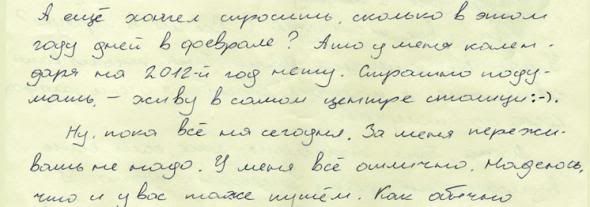 А ещё хотел спросить, сколько в этом
году дней в феврале? А то у меня кален-
даря на 2012-й год нету. Страшно поду-
мать, – живу в самом центре столицы :-).
Ну, пока всё на сегодня. За меня пережи-
вать не надо. У меня всё отлично. Надеюсь,
что и у вас тоже путём. Как обычно